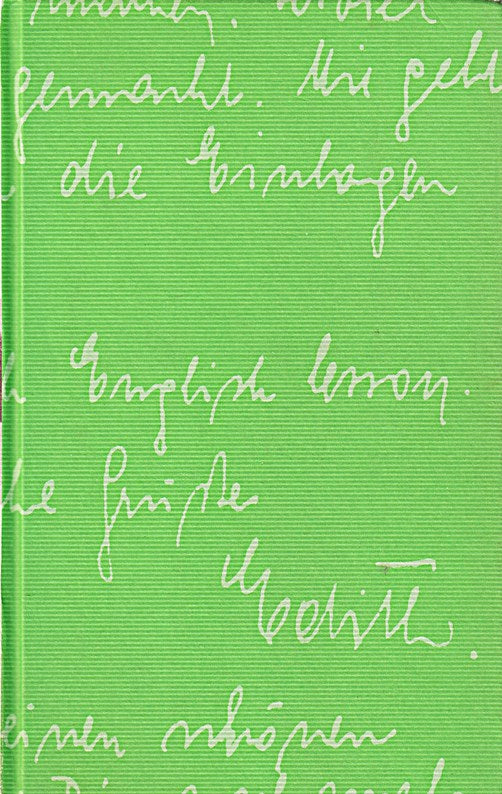 gemacht. Mir geht
die Einlagen
h English lesson.
he Grüße
Edith.
einen schönen